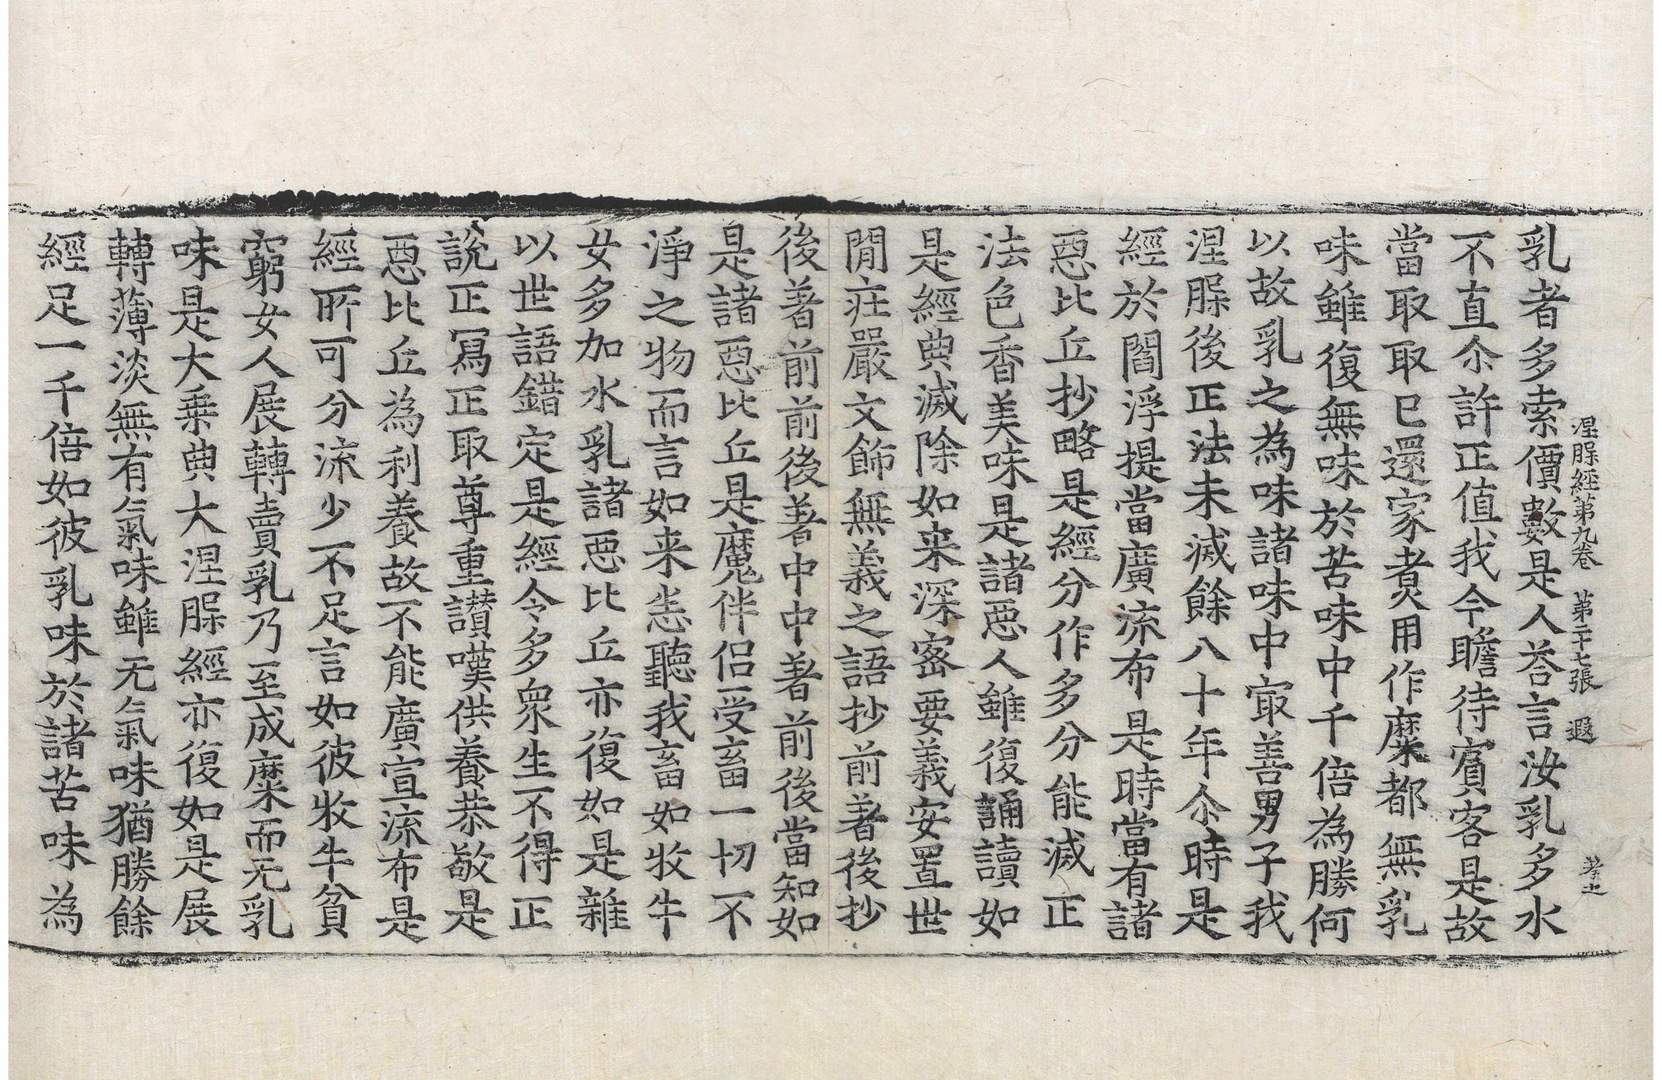 涅槃經第九卷　第二十七張　遐　孝之
乳者多索價數是人荅言汝乳多水
不直尒許正值我今瞻待賓客是故
當取取已還家煑用作糜都無乳
味雖復無味於苦味中千倍為勝何
以故乳之為味諸味中㝡善男子我
涅槃後正法未滅餘八十年尒時是
經於閻浮提當廣流布是時當有諸
惡比丘抄略是經分作多分能滅正
法色香美味是諸惡人雖復誦讀如
是經典滅除如来深密要義安置世
閒疘嚴文飾無義之語抄前著後抄
後著前前後著中中著前後當知如
是諸惡比丘是魔伴侶受畜一切不
淨之物而言如来恣聽我畜如牧牛
女多加水乳諸惡比丘亦復如是雜
以世語錯定是經令多衆生不得正
說正寫正取尊重讃嘆供養恭敬是
惡比丘為利養故不能廣宣流布是
經所可分流少不足言如彼牧牛貧
窮女人展轉賣乳乃至成糜而无乳
味是大乗典大涅槃經亦復如是展
轉薄淡無有氣味雖无氣味猶勝餘
經足一千倍如彼乳味於諸苦味為